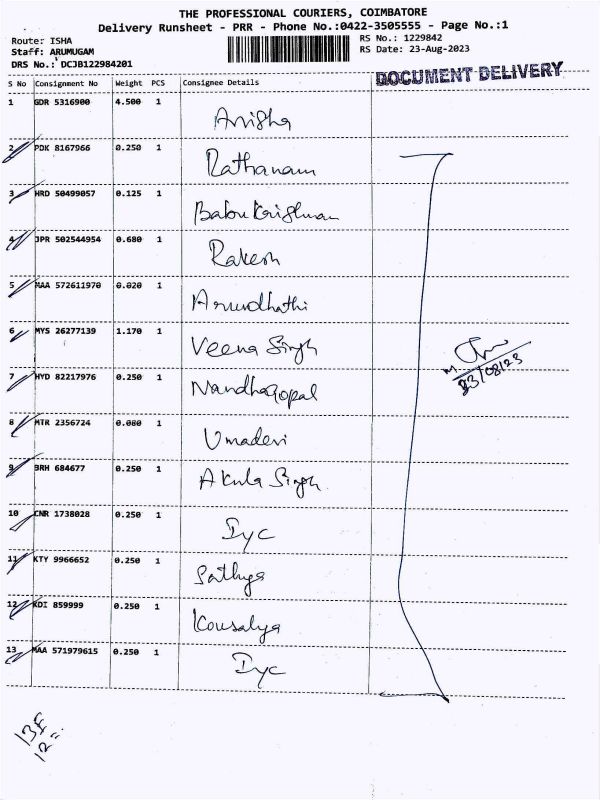 THE PROFESSIONAL COURIERS, COIMBATORE
Delivery Runsheet - PRR - Phone No.:0422-3505555 - Page No.:1
Route: ISHA
Staff: ARUMUGAM
DRS No.: DCJB122984201
RS No.: 1229842
RS Date: 23-Aug-2023
DOCUMENT DELIVERY
S No Consignment No Weight PCS Consignee Details
1 GDR 5316900 4.500 1 Anisha
2 PDK 8167966 0.250 1 Rathanam
3 HRD 50499057 0.125 1 Babu Krishnan
4 JPR 502544954 0.680 1 Rakesh
5 MAA 572611970 0.020 1 Arundhathi
6 MYS 26277139 1.170 1 Veena Singh
7 HYD 82217976 0.250 1 Nandhagopal
8 MTR 2356724 0.080 1 Umadevi
9 BRH 684677 0.250 1 Akula Singh
10 CNR 1738028 0.250 1 Iyc
11 KTY 9966652 0.250 1 Sathya
12 KDI 859999 0.250 1 Kousalya
13 MAA 571979615 0.250 1 Iyc
23/08/23